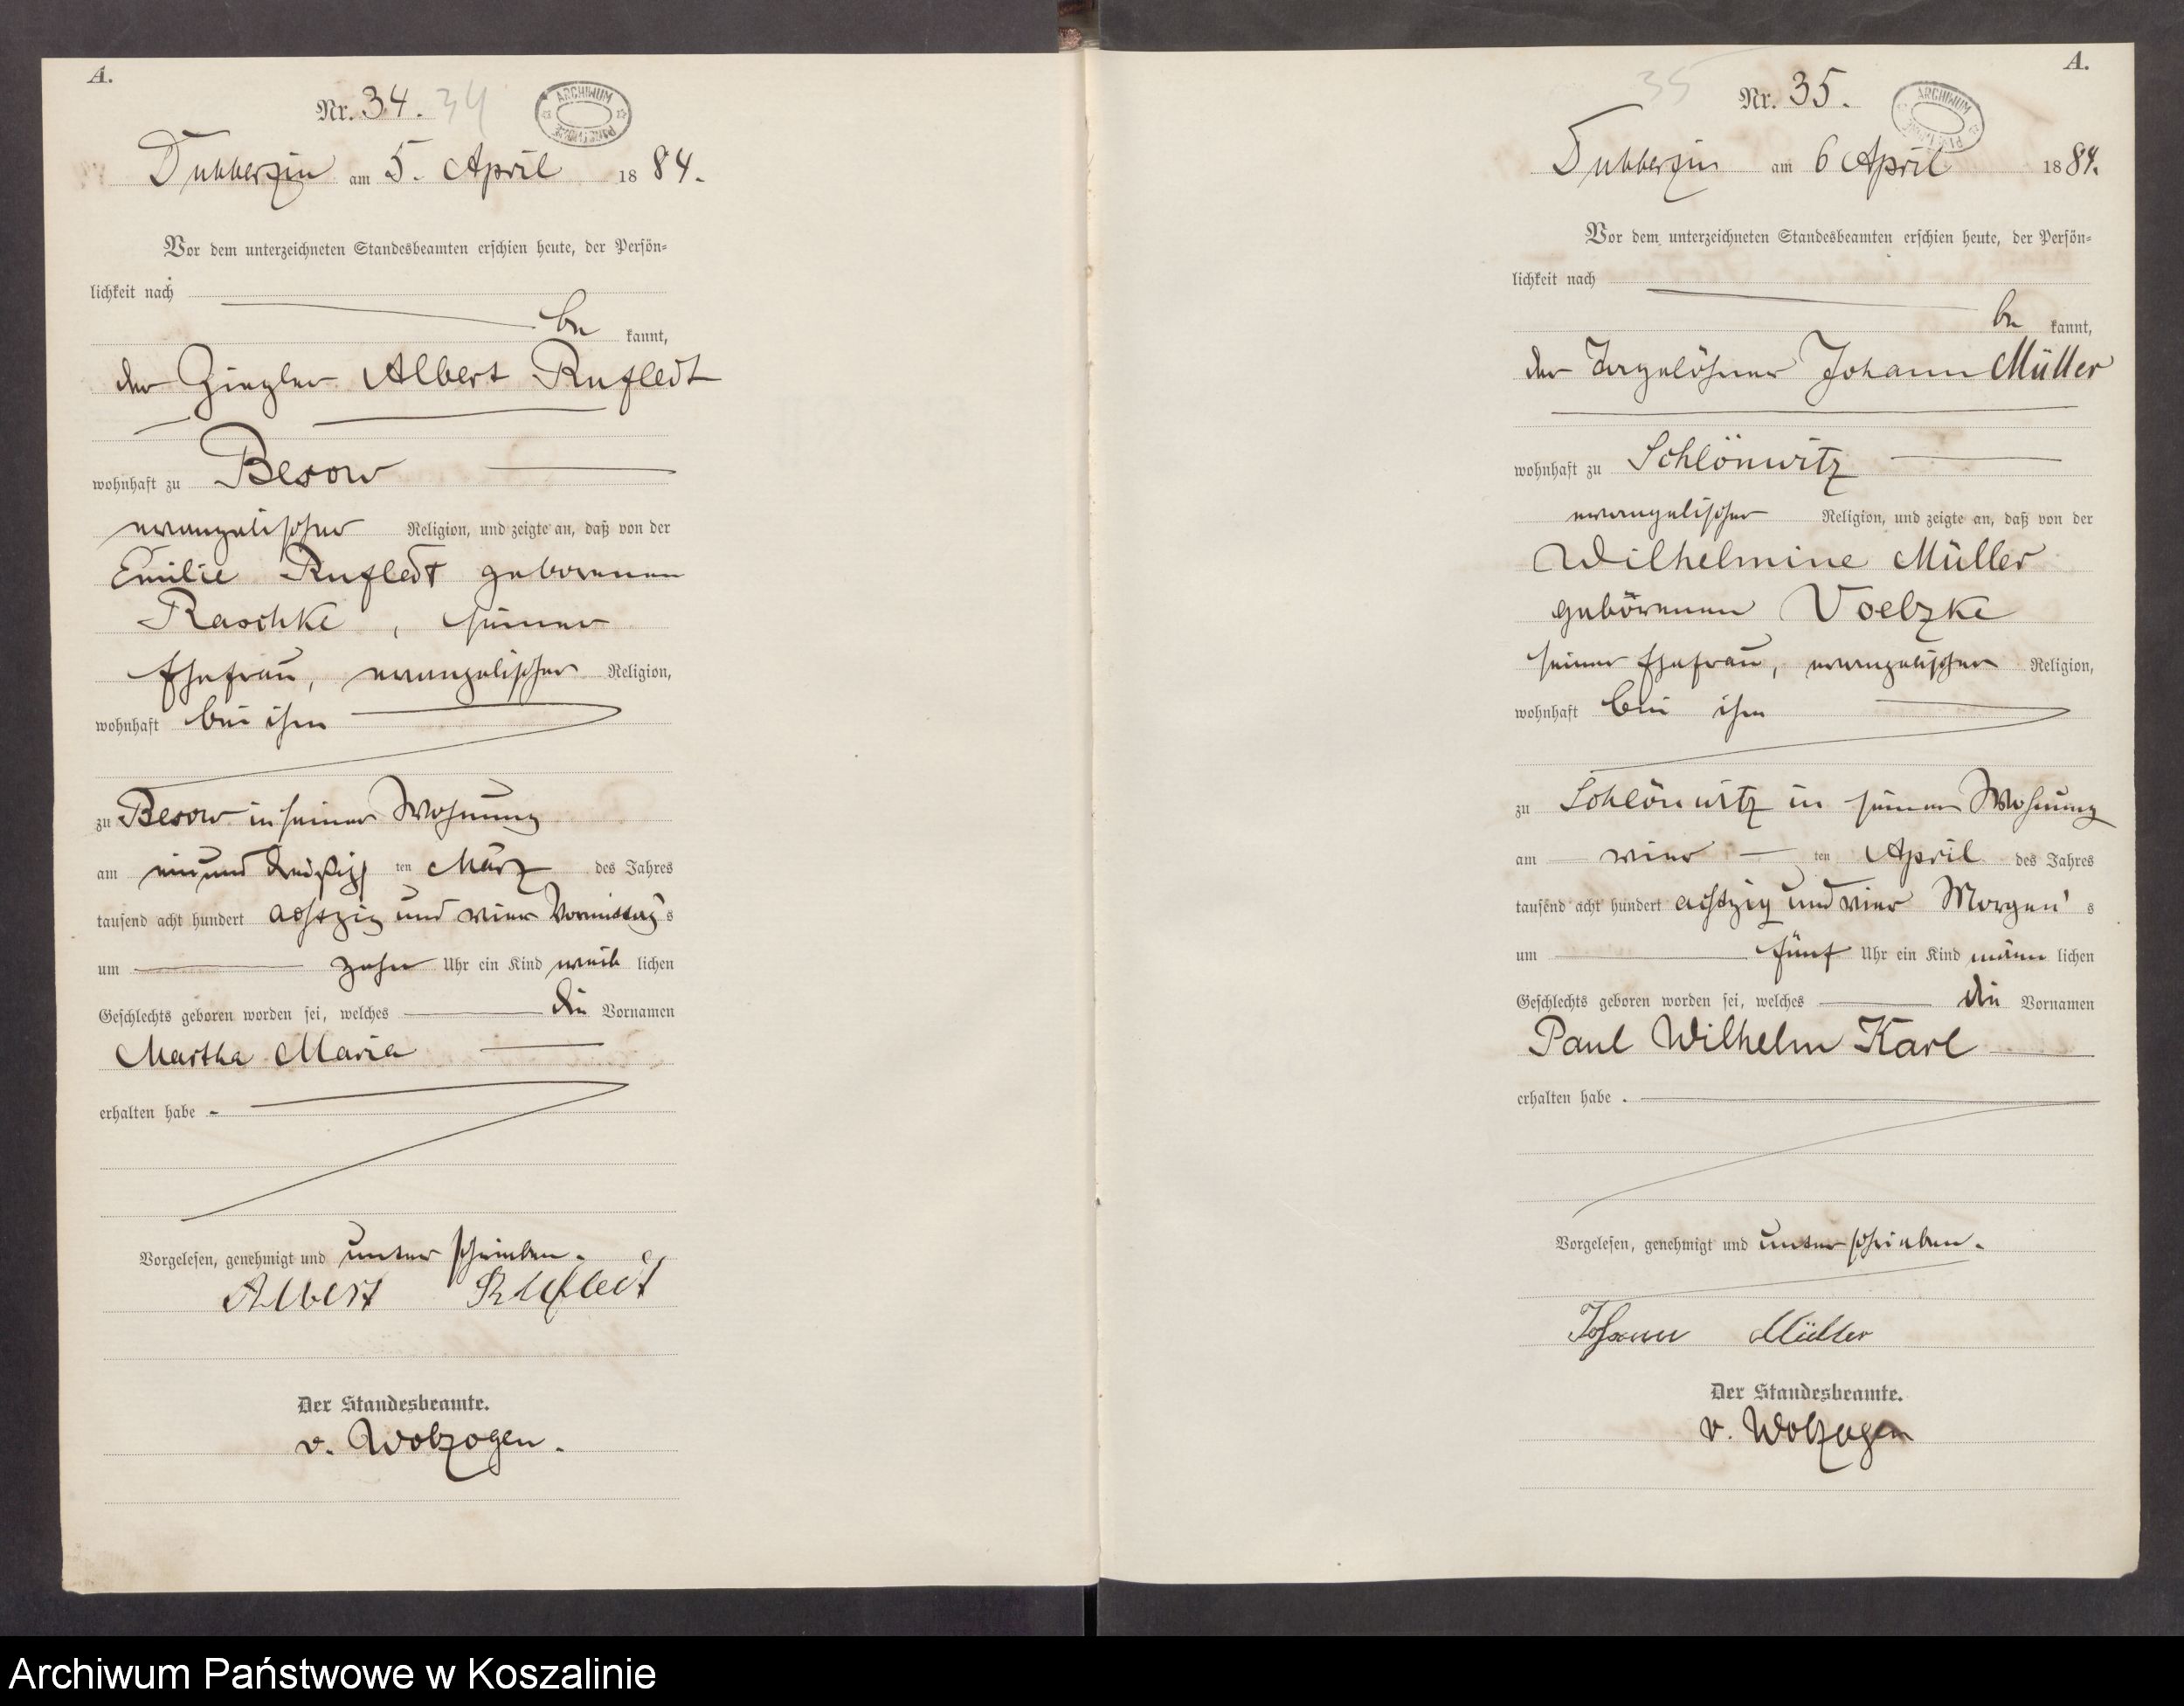 A.
Nr. 34. 34
ARCHIWUM
Dubberzin am 5. April 1884.
Vor dem unterzeichneten Standesbeamten erschien heute, der Persön-
lichkeit nach
be kannt,
der Ziegler Albert Rufledt
wohnhaft zu Besow
evangelischer Religion, und zeigte an, daß von der
Emilie Rufledt geborenen
Raschke, seiner
Ehefrau, evangelischer Religion,
wohnhaft bei ihm
zu Besow in seiner Wohnung
am ein und dreißig ten März des Jahres
tausend acht hundert achtzig und vier Vormittags
um zehn Uhr ein Kind weib lichen
Geschlechts geboren worden sei, welches die Vornamen
Martha Maria
erhalten habe.
Vorgelesen, genehmigt und unterschrieben.
Albert Rufledt
Der Standesbeamte.
v. Wolzogen.
A.
35 Nr. 35.
ARCHIWUM
Dubberzin am 6 April 1884.
Vor dem unterzeichneten Standesbeamten erschien heute, der Persön-
lichkeit nach
be kannt,
der Tagelöhner Johann Müller
wohnhaft zu Schlönwitz
evangelischer Religion, und zeigte an, daß von der
Wilhelmine Müller
geborenen Voelzke
seiner Ehefrau, evangelischer Religion,
wohnhaft bei ihm
zu Schlönwitz in seiner Wohnung
am vier ten April des Jahres
tausend acht hundert achtzig und vier Morgen's
um fünf Uhr ein Kind männ lichen
Geschlechts geboren worden sei, welches die Vornamen
Paul Wilhelm Karl
erhalten habe.
Vorgelesen, genehmigt und unterschrieben.
Johann Müller
Der Standesbeamte.
v. Wolzogen
Archiwum Państwowe w Koszalinie